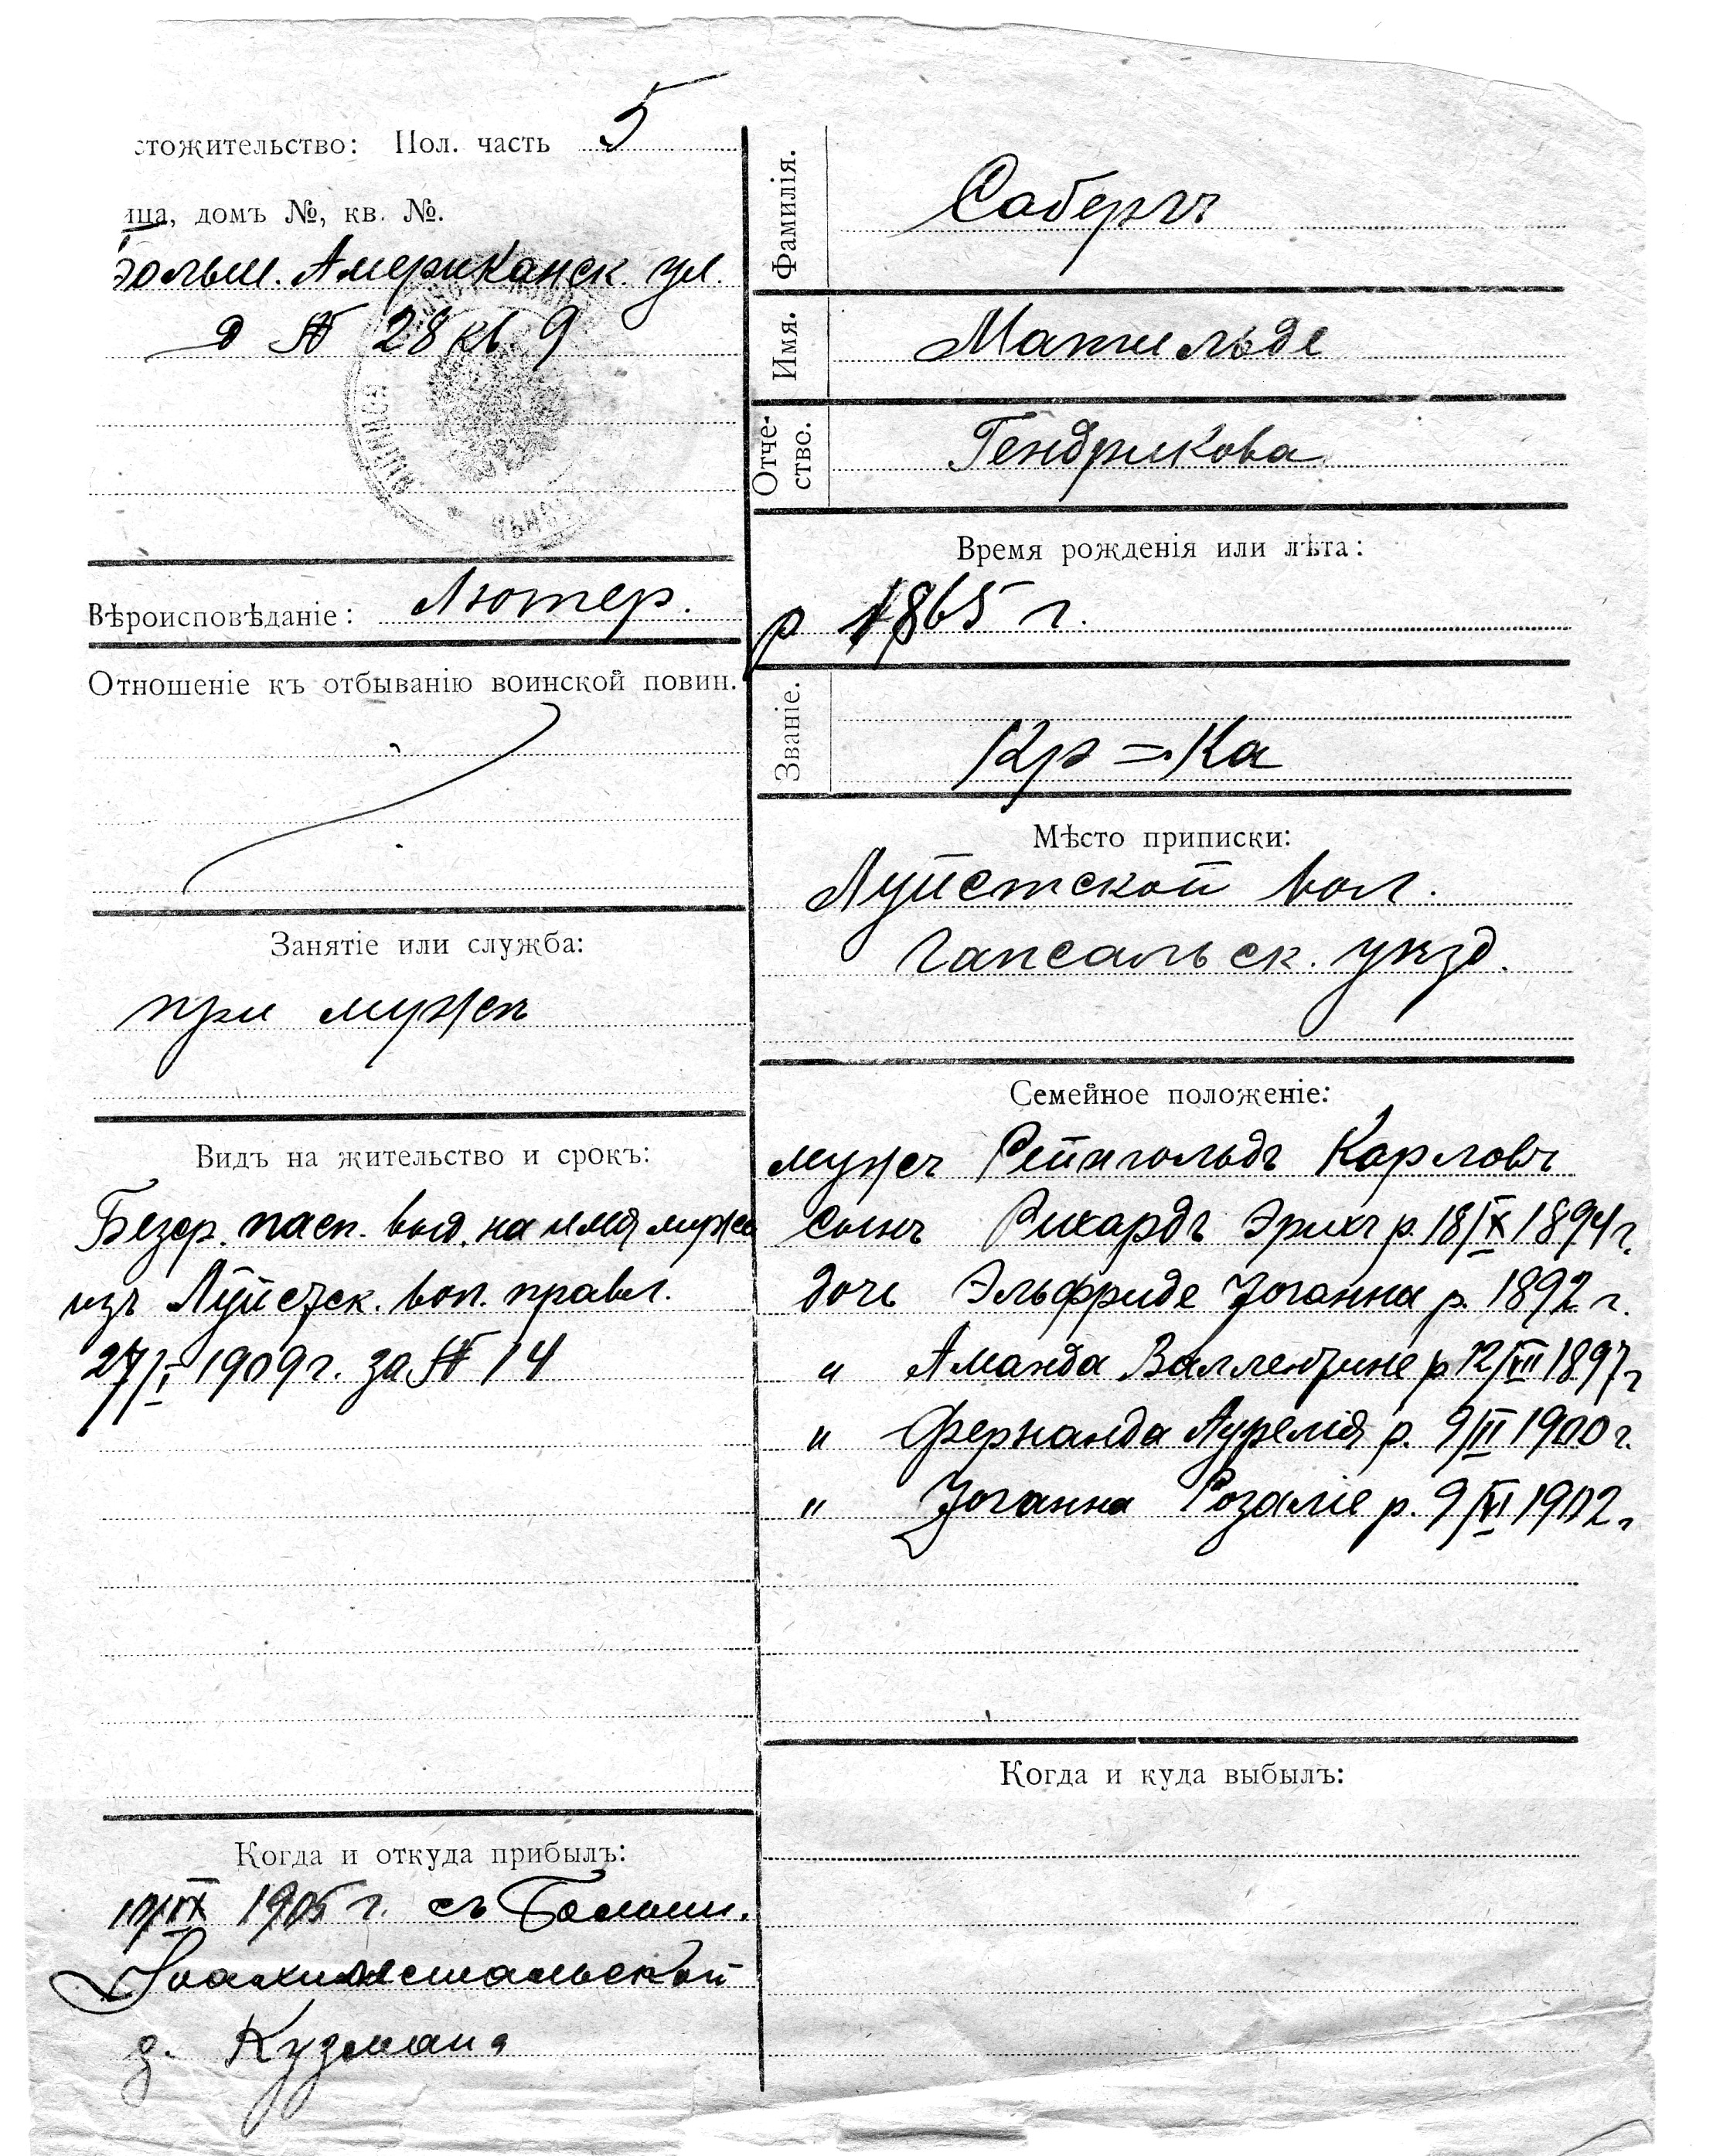 стожительство: Пол. часть 5
ица, домъ №, кв. №.
Больш. Американск. ул.
д № 28 кв. 9
Вѣроисповѣданіе: Лютер.
Отношеніе къ отбыванію воинской повин.
Занятіе или служба:
при мужѣ
Видъ на жительство и срокъ:
Безср. пасп. выд. на имя мужа
изъ Луйстск. вол. правл.
27/I 1909 г. за № 14
Когда и откуда прибылъ:
10/IX 1905 г. съ Больш.
Іоахимстальской
д. Кузмана
Фамилія.
Сабергъ
Имя.
Матильде
Отче-
ство.
Гендрикова
Время рожденія или лѣта:
р 1865 г.
Званіе.
Кр=Ка
Мѣсто приписки:
Луйстской вол.
Гапсальск. уѣзд.
Семейное положеніе:
мужъ Рейнгольдъ Карловъ
сынъ Рихардъ Эрихъ р. 18/IX 1894 г.
дочь Эльфриде Іоганна р. 1892 г.
" Аманда Валлентине р. 12/VII 1897 г
" Фернанда Аурелія р. 9/II 1900 г.
" Іоганна Розаліе р. 9/VI 1902 г
Когда и куда выбылъ: